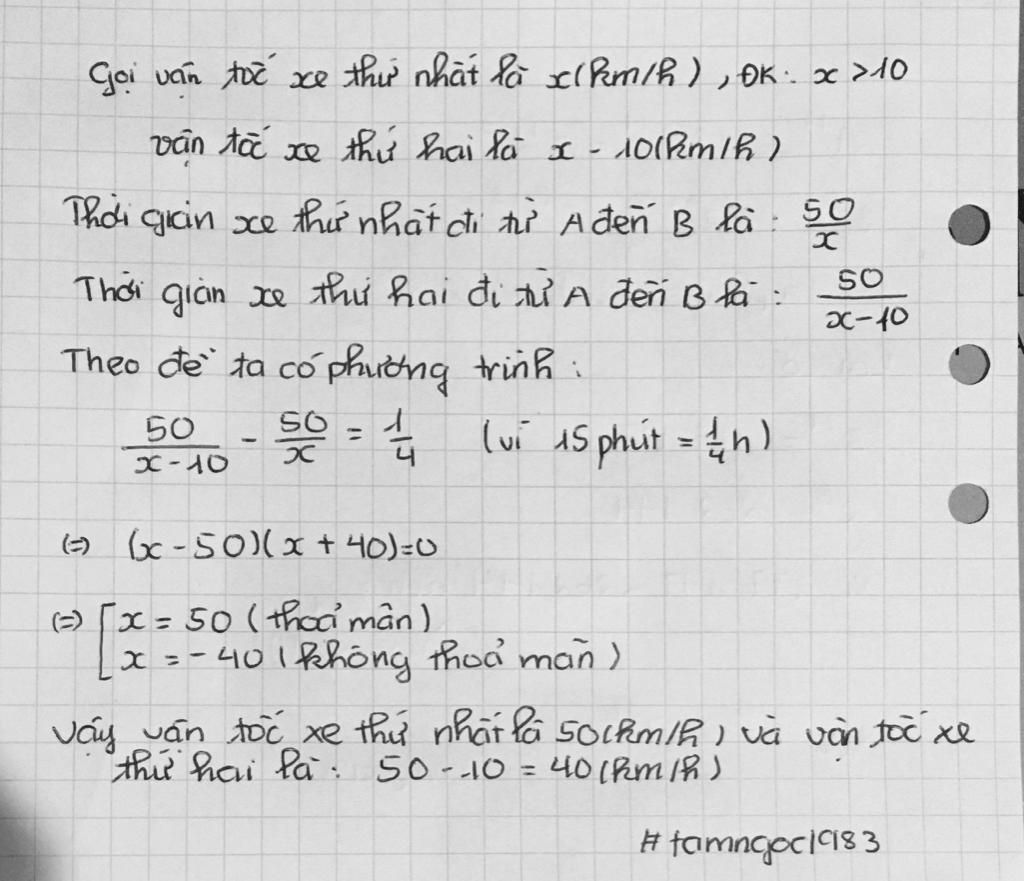 Gọi vận tốc xe thứ nhất là x(km/h), ĐK: x > 10
vận tốc xe thứ hai là x - 10(km/h)
Thời gian xe thứ nhất đi từ A đến B là: 50/x
Thời gian xe thứ hai đi từ A đến B là: 50/(x-10)
Theo đề ta có phương trình:
50/(x-10) - 50/x = 1/4 (vì 15 phút = 1/4 h)
(=) (x-50)(x+40)=0
(=) [x = 50 (thoả mãn)
x = -40 (không thoả mãn)
Vậy vận tốc xe thứ nhất là 50(km/h) và vận tốc xe
thứ hai là: 50-10 = 40(km/h)
#tamngoc1983